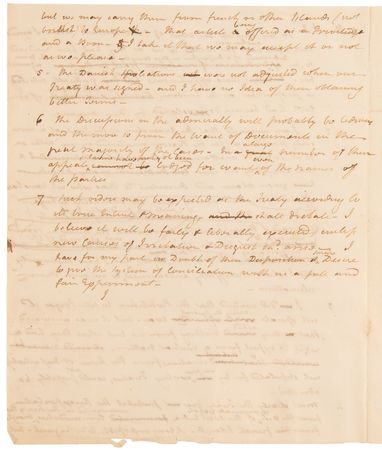 but we may carry them from french or other Islands (not
British) to Europe - That article being offered as a Privilege
and a Boon - I take it that we may accept it or not
as we please -
5 - The Danish were not adjusted when our
Treaty was signed - and I have no Idea of their obtaining
better Terms -
6 The Decisions in the admiralty will probably be
and the more so from the want of Documents in the
great majority of the Cases - In a number of them
appeals have not been entered for want even of the names of
the Parties
7 what orders may be expected as the Treaty according to
its true Intent & meaning shall dictate - I
believe it will be fairly & liberally executed, unless
new Causes of Irritation & Disgust shd. arise - I
have for my part no Doubt of their Disposition & Desire
to give the System of Conciliation with us a full and
fair Experiment -